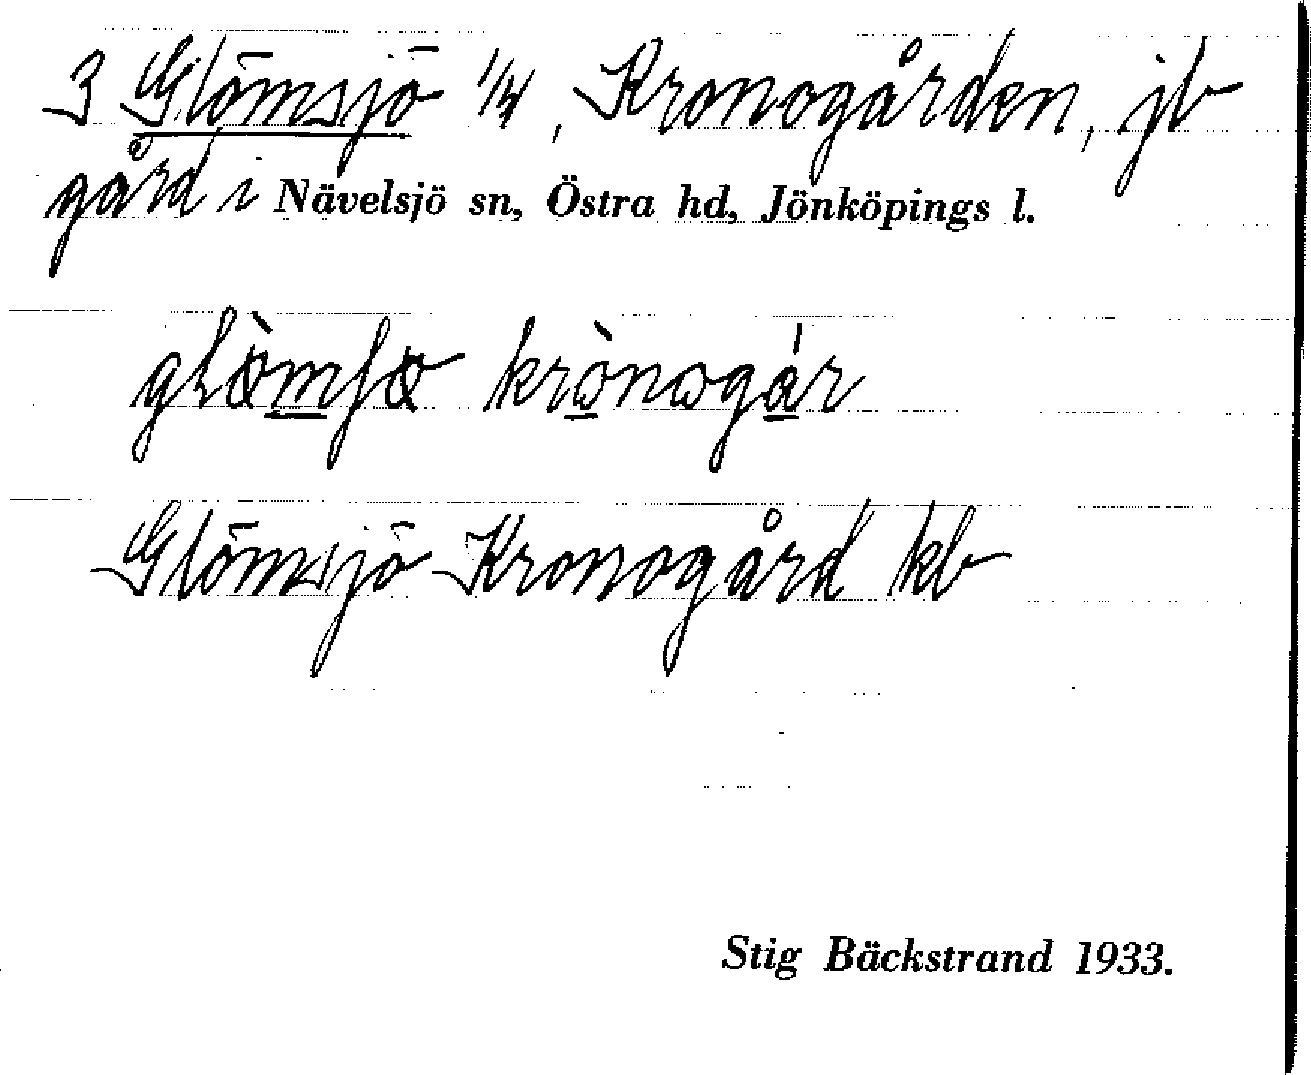 3 Glömsjö 1/4, Kronogården, jb
gård i Nävelsjö sn, Östra hd, Jönköpings l.
krònogár
Glömsjö Kronogård kb
Stig Bäckstrand 1933.